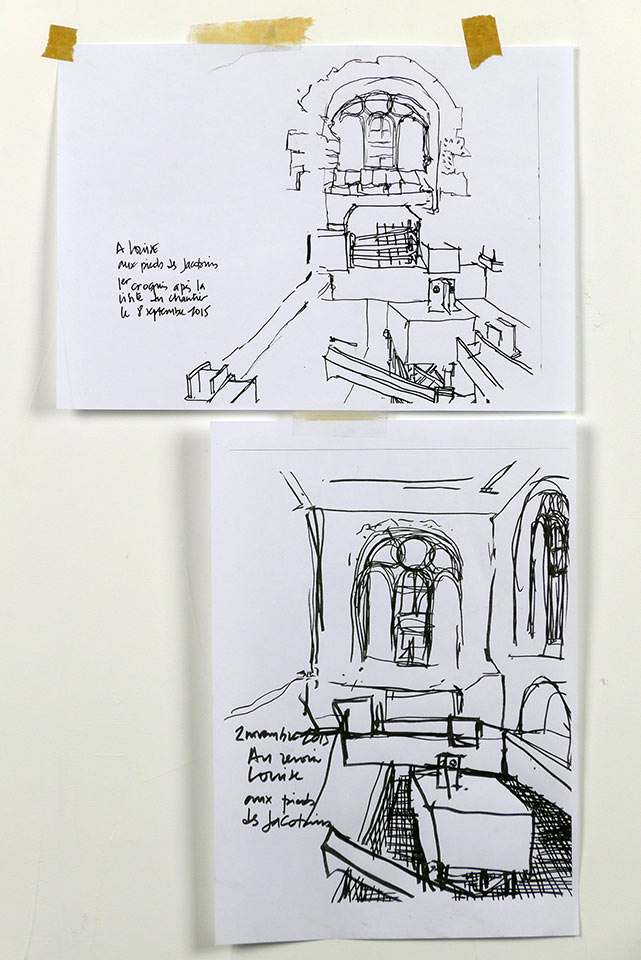 A Louise
aux pieds des Jacobins
1er croquis après la
visite du chantier
le 8 septembre 2015
2 novembre 2015
Au revoir
Louise
aux pieds
des Jacobins